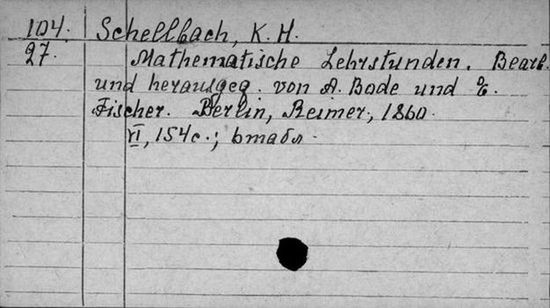 104. Schellbach, K. H.
27. Mathematische Lehrstunden. Bearb.
und herausgeg. von A. Bode und E.
Fischer. Berlin, Reimer, 1860.
VI, 154 с.; 6 табл.